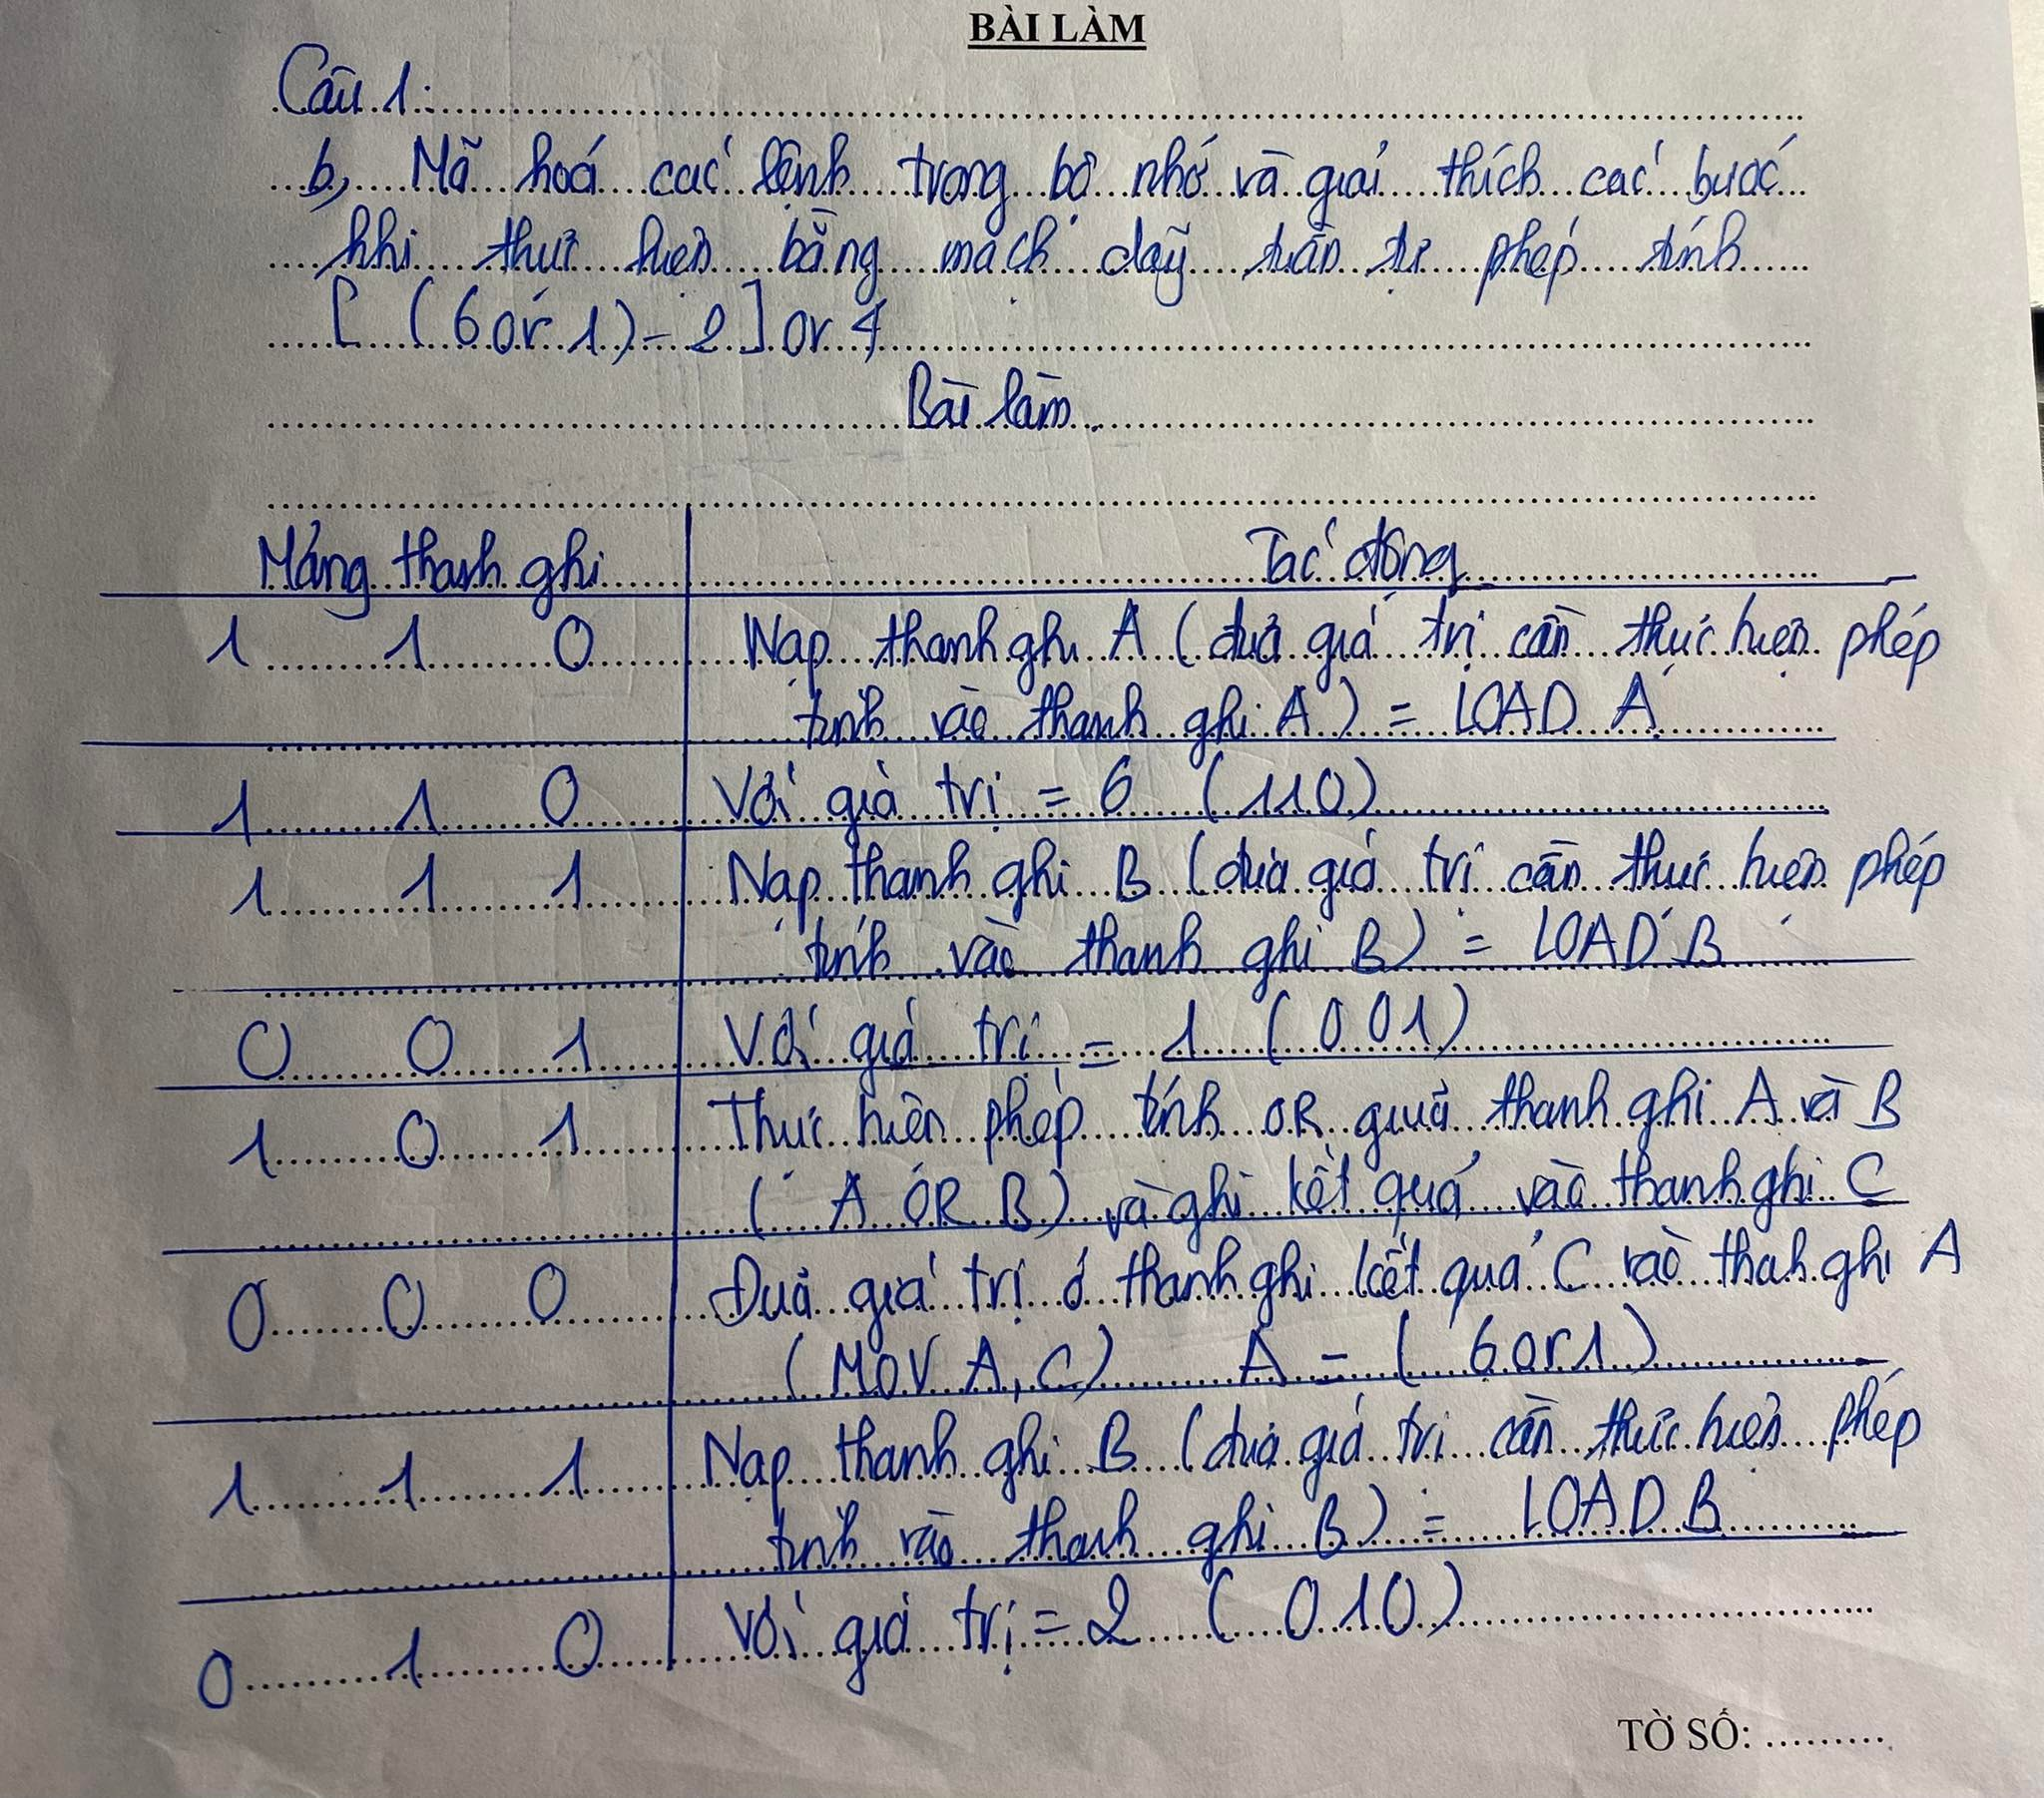 BÀI LÀM
Câu 1:
b, Mã hoá các lệnh trong bộ nhớ và giải thích các bước
khi thực hiện bằng mạch dãy tuần tự phép tính
[ (6 or 1) - 2 ] or 4
Bài làm
Mảng thanh ghi Tác động
1 1 0 Nạp thanh ghi A (đưa giá trị cần thực hiện phép
tính vào thanh ghi A) = LOAD A
1 1 0 Với giá trị = 6 (110)
1 1 1 Nạp thanh ghi B (đưa giá trị cần thực hiện phép
tính vào thanh ghi B) = LOAD B
0 0 1 Với giá trị = 1 (001)
1 0 1 Thực hiện phép tính OR giữa thanh ghi A và B
(A OR B) và ghi kết quả vào thanh ghi C
0 0 0 Đưa giá trị ở thanh ghi kết quả C vào thah ghi A
(MOV A, C) A = (6 or 1)
1 1 1 Nạp thanh ghi B (đưa giá trị cần thực hiện phép
tính vào thanh ghi B) = LOAD B
0 1 0 Với giá trị = 2 (010)
TỜ SỐ: .........